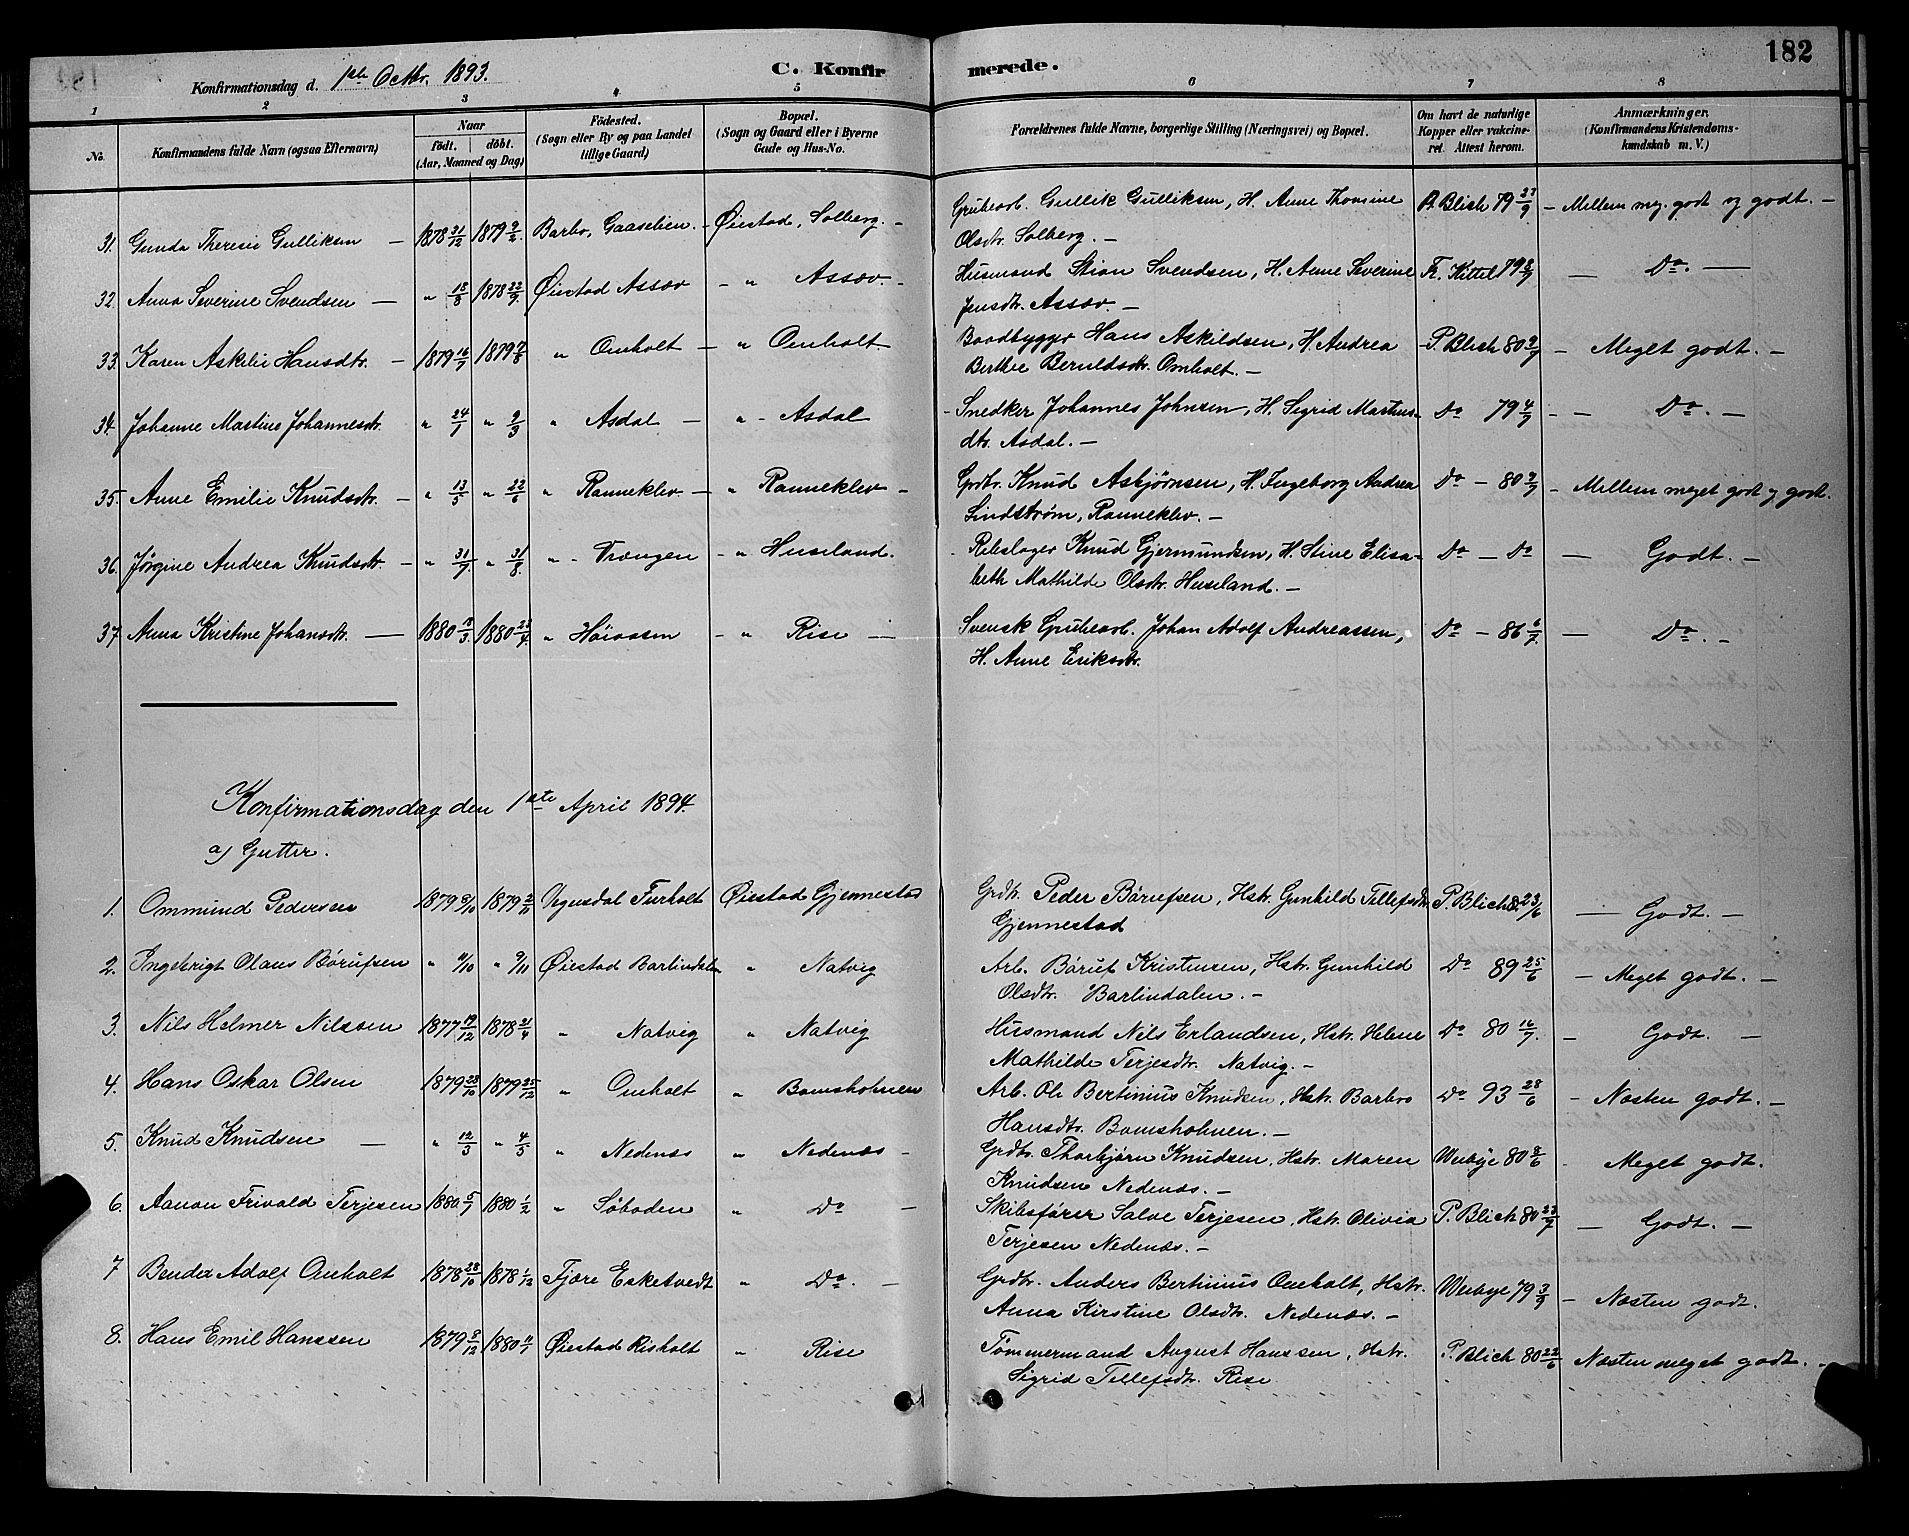 182
Konfirmationsdag d. 1ste Octbr. 1893.
C. Konfirmerede.
1 2 3 4 5 6 7 8
No.
Konfirmandens fulde Navn (ogsaa Efternavn)
Naar
födt. döbt.
(Aar, Maaned og Dag)
Födested.
(Sogn eller By og paa Landet
tillige Gaard)
Bopæl.
(Sogn og Gaard eller i Byerne
Gade og Hus-No.
Forældrenes fulde Navne, borgerlige Stilling (Næringsvei) og Bopæl.
Om havt de naturlige
Kopper eller vakcine-
ret. Attest herom.
Anmærkninger.
(Konfirmandens Kristendoms-
kundskab m. V.)
31. Gunda Theresie Gulliksen — 1878 31/12 1879 9/2 Barbo, Gaaseleien - Øiestad, Solberg. - Grubearb. Gullik Gulliksen, H. Anne Thomine P. Blich 79 27/9 - Mellem meg. godt og godt. -
Olsdtr. Solberg. -
32. Anna Severine Svendsen — " 18/8 1878 22/9 Øiestad Assev - " Assev. - Husmand Stian Svendsen, H. Anne Severine Fr. Kittel 79 8/7 — Do. —
Jensdtr. Assev. -
33. Karen Askilie Hansdtr. - 1879 16/7 1879 7/8 " Omholt - " Omholt - Baadbygger Hans Askildsen, H. Andrea P. Blich 80 9/7 - Meget godt. -
Berthe Beruldsdtr. Omholt. -
34. Johanne Martine Johannesdtr. " 24/1 " 9/3 " Asdal - " - Asdal - Snedker Johannes Johnsen, H. Sigrid Martins- Do 79 4/7 - - Do. -
dtr. Asdal. -
35. Anne Emilie Knudsdtr. - " 13/5 " 22/6 " Ranneklev - " Ranneklev - Grdbr. Knud Asbjørnsen, H. Ingeborg Andrea Do - 80 9/7 - Mellem meget godt og godt.
Lindstrøm, Ranneklev. -
36. Jørgine Andrea Knudsdtr. - " 31/7 " 31/8 " - Trongen - " Huseland. - Rebslager Knud Gjermundsen, H. Stine Elisa- Do - Do — Godt. -
beth Mathilde Olsdtr. Huseland. -
37. Anna Kristine Johansdtr. — 1880 18/3 1880 25/4 " Høiaasen - " Rise — Svensk Grubearb. Johan Adolf Andreassen, Do - 86 6/7 — Do. -
H. Anne Eriksdtr.
Konfirmationsdag den 1ste April 1894.
a) Gutter.
1. Ommund Pedersen 1879 8/10 1879 2/11 Vegusdal Furholt Øiestad Gjennestad Grdbr. Peder Børufsen, Hstr. Gunhild Tellefsdtr. P. Blich 23/6 — Godt. -
Gjennestad
2. Ingebrigt Olaus Børufsen " 9/10 " 9/11 Øiestad Barlindalen " Natvig Arb. Børuf Kristensen, Hstr. Gunhild Do 89 25/6 - Meget godt. -
Olsdtr. Barlindalen. -
3. Nils Helmer Nilssen 1877 19/12 1878 21/4 " Natvig " Natvig Husmand Nils Erlandsen, Hstr. Helene Do 80 16/7. - Godt. -
Mathilde Terjesdtr. Natvig. -
4. Hans Oskar Olsen 1879 28/10 1879 25/12 " Omholt " Bomsholmen Arb. Ole Bertinius Knudsen, Hstr. Barbro Do 93 28/6 - Næsten godt. -
Hansdtr. Bomsholmen. -
5. Knud Knudsen — " 12/3 " 4/5 " Nedenæs " Nedenæs - Grdbr. Thorbjørn Knudsen, Hstr. Maren Wesbye 80 8/6 - Meget godt.
Knudsen Nedenæs. -
6. Aanon Frivald Terjesen 1880 5/1 1880 1/2 " Søboden " Do - Skibsfører Salve Terjesen, Hstr. Olivia P. Blich 80 23/7 — Godt. -
Terjesen Nedenæs. -
7 Bendix Adolf Omholt 1878 28/10 1878 1/12 Fjære Eskedvedt " Do. - Grdbr. Anders Bertinius Omholt, Hstr. Wesbye 79 3/9 - Næsten godt.
Anna Kirstine Olsdtr. Nedenæs. -
8. Hans Emil Hanssen 1879 8/12 1880 11/1 Øiestad Risholt " Rise Tømmermand August Hanssen, Hstr. P. Blich 80 22/6 Næsten meget godt. -
Sigrid Tellefsdtr. Rise